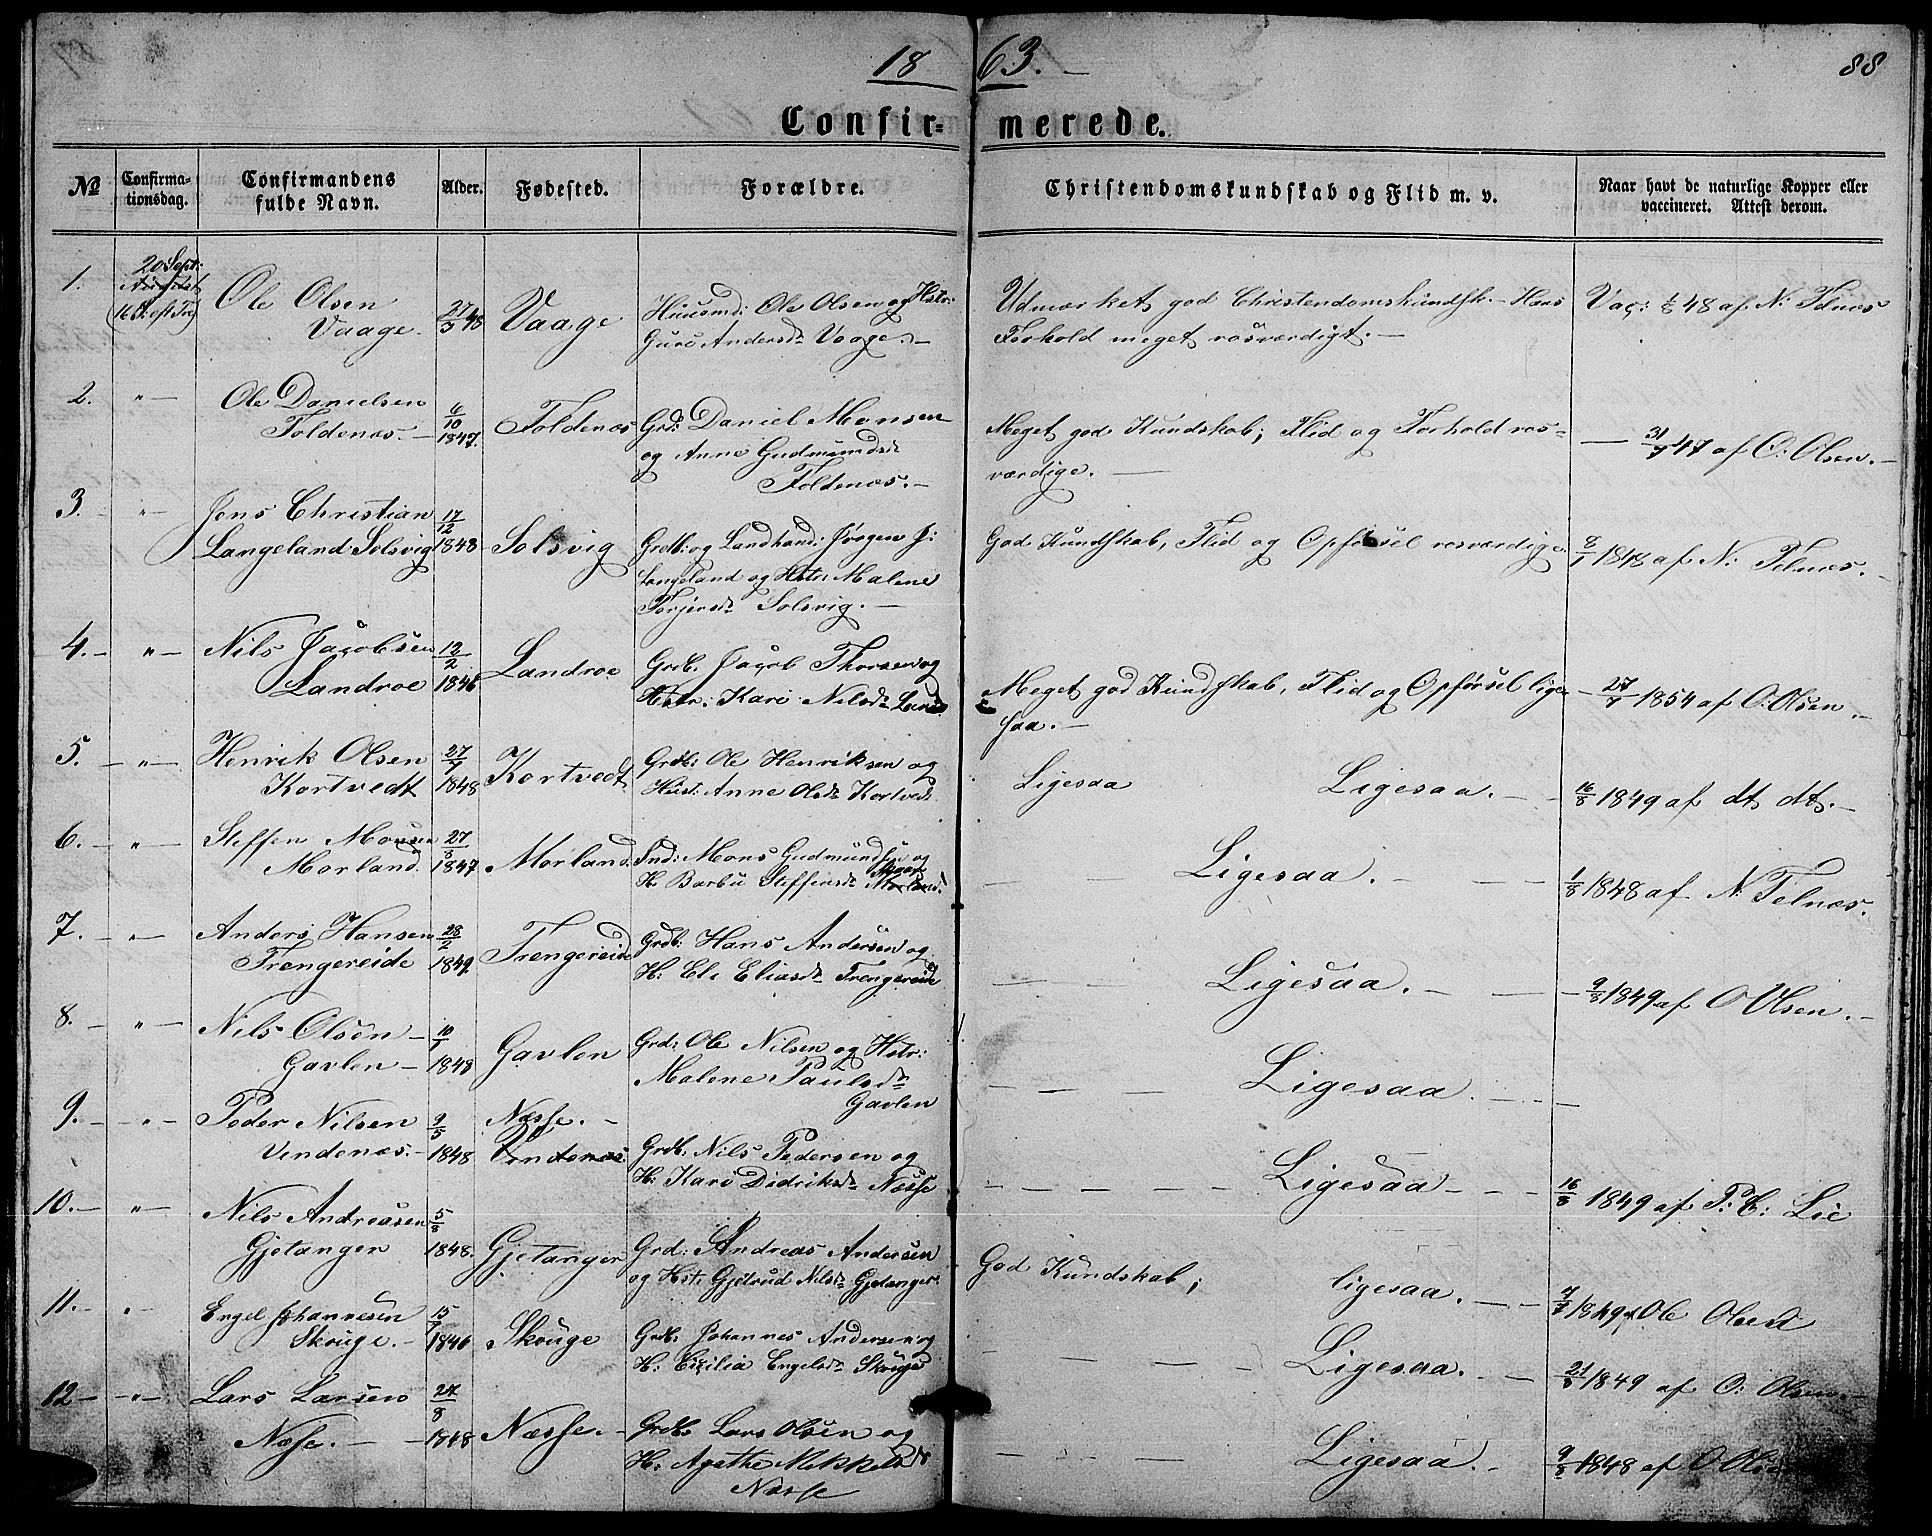 18 63. 88
Confirmerede.
№ Confirmationsdag. Confirmandens fulde Navn. Alder. Fødested. Forældre. Christendomskundskab og Flid m. v. Naar havt de naturlige Kopper eller vaccineret. Attest derom.
1. 20 Sept: (16 S. eft Tr) Ole Olsen Vaage. 27/3 48 Vaage Huusmd: Ole Olsen og Hstr: Guro Andersdr Vaage.- Udmærket god Christendomskundsk.- Hans Forhold meget rosværdigt.- Vac: 1/8 48 af N: Telnæs
2. -"- Ole Danielsen Toldenæs.- 6/10 1847. Toldenæs Grd: Daniel Monsen og Anne Gudmundsdr Toldenæs.- Meget god Kundskab; Flid og Forhold rosværdige.- - 31/7 47 af O: Olsen.-
3.- -"- Jens Christian Langeland Solsvig 17/12 1848 Solsvig Grdb: og Landhand: Jørgen J: Langeland og Hstr: Malene Torjersdr Solsvig.- God Kundskab, Flid og Opførsel rosværdige. 8/1 1848 af N: Telnæs.-
4.- -"- Nils Jacobsen Landroe 12/2 1846 Landroe Grdb. Jacob Thorsen og Hstr: Kari Nilsdr Landroe Meget god Kundskab, Flid og Opførsel ligesaa.- - 27/7 1854 af O: Olsen.-
5. -"- Henrik Olsen Kortvedt 27/7 1848 Kortvedt Grdb: Ole Henriksen og Hust: Anne Olsdr Kortvedt Ligesaa Ligesaa.- 16/8 1849 af dt dt.-
6.- -"- Steffen Monsen Morland. 27/8 1847 Morland. Ind: Mons Gudmundsen og H. Barbu Steffensdr Morland. - - Ligesaa.- - - 1/8 1848 af N: Telnæs.
7.- -"- Anders Hansen Trengereide 28/2 1849. Trengereide Grdb: Hans Andersen og H: Eli Eliasdr Trengereide - - - Ligesaa.- - - 9/8 1849 af O Olsen.-
8.- -"- Nils Olsen- Gavlen- 10/1 1848 Gavlen Grd: Ole Nilsen og Hstr: Malene Paulsdr Gavlen - - - Ligesaa.- - -
9.- -"- Peder Nilsen Vindenæs.- 9/5 1848 Næsse.- Vindenæs. Grdb. Nils Pedersen og H: Kari Didriksdr Næsse - - - - - Ligesaa- - - 16/8 1849 af P: C: Lie
10.- -"- Nils Andreasen Gjetanger 5/8 1848. Gjetanger Grd: Andreas Andersen og Hst: Gjetrud Nilsdr Gjetanger God Kundskab; ligesaa.- - 7/7 1849 af Ole Olsen
11.- " - Engel Johannesen Skouge.- 15/7 1846 Skouge Grdb: Johannes Andersen og H: Cicilia Engelsdr Skouge - - - - Ligesaa.- - 21/8 1849 af O: Olsen.-
12- -"- Lars Larsen Næsse.- 24/8 1848 Næsse.- Grdb. Lars Olsen og H: Agathe Mikkelsdr Næsse - - - - Ligesaa.- 9/8 1848 af O Olsen